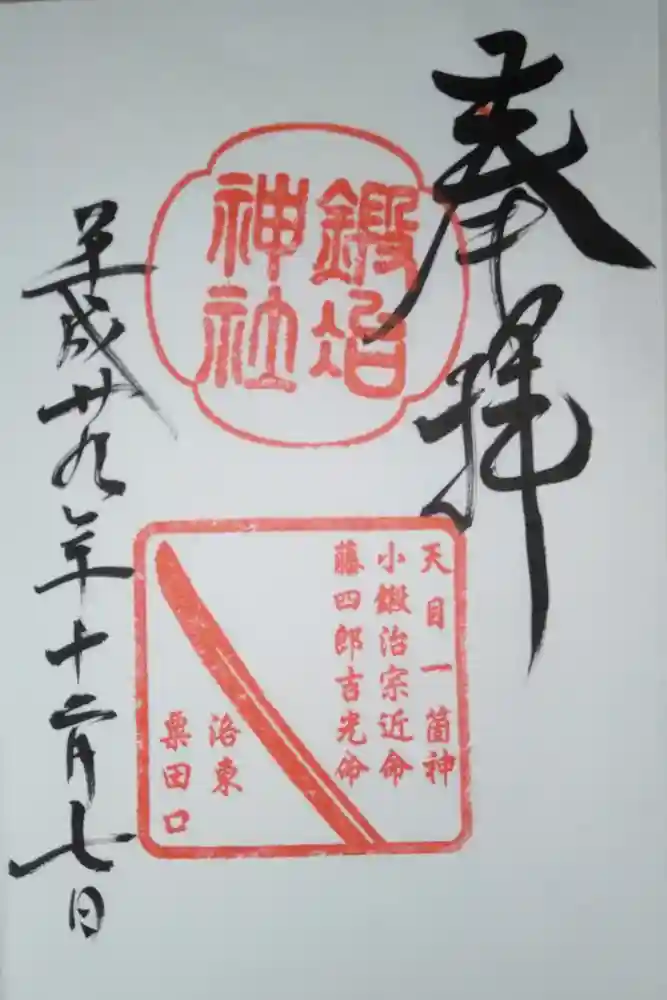 奉拝
鍛冶
神社
天目一箇神
小鍛治宗近命
藤四郎吉光命
洛東
粟田口
平成廿九年十二月七日